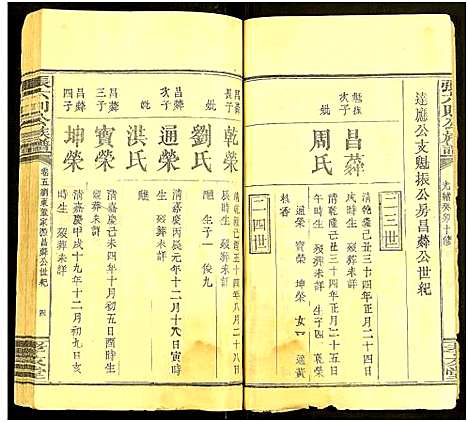 達應公支魁振公房昌蕣公世紀
二三世
魁振
次子
昌蕣
清乾隆己丑三十四年二月二十四日
戌時生 歿葬未詳
妣
周氏
清乾隆己丑三十四年二月二十五
卯時生 歿葬未詳 生子四 乾榮
通榮 寶榮 坤榮 女一 適黃
桃香
二四世
昌蕣
長子
乾榮
清乾隆己酉五十四年八月二十八日
辰時生 歿葬未詳
妣
劉氏
生歿葬未詳 生子一 俊九
昌蕣
次子
通榮
清嘉慶丙辰元年十二月十八日寅時
生 歿葬未詳
妣
洪氏
生歿葬未詳
昌蕣
三子
寶榮
清嘉慶己未四年十月初五日酉時生
歿葬未詳
昌蕣
四子
坤榮
清嘉慶甲戌十九年十二月初九日亥
時生 歿葬未詳
卷五瀏東董家源昌蕣公世紀 四